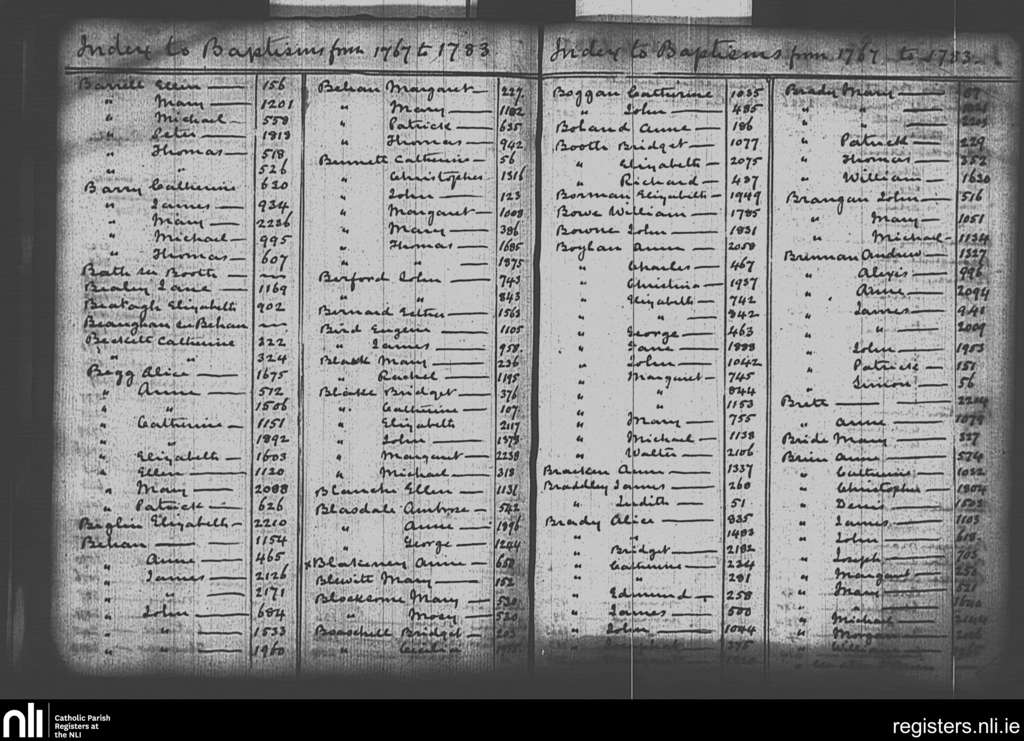 Index to Baptisms from 1767 to 1783
Barrell Ellen — 156
" Mary — 1201
" Michael — 558
" Peter — 1813
" Thomas — 518
" " 526
Barry Catherine 620
" James — 934
" Mary — 2236
" Michael — 995
" Thomas — 607
Bath see Booth — —
Bealey Jane — 1169
Beatagh Elizabeth 902
Beaughan see Behan —
Beckett Catherine 322
" " 324
Begg Alice — 1675
" Anne — 512
" " 1506
" Catherine — 1151
" " 1892
" Elizabeth — 1603
" Ellen — 1120
" Mary — 2088
" Patrick — 626
Beglin Elizabeth — 2210
Behan — — 1154
" Anne — 465
" James — 2126
" " — 2171
" John — 684
" " — 1533
" " — 1960
Behan Margaret — 227
" Mary — 1182
" Patrick — 635
" Thomas — 942
Bennett Catherine — 56
" Christopher 1316
" John — 123
" Margaret — 1008
" Mary — 386
" Thomas — 1685
" " — 1875
Berford John — 743
" " 843
Bernard Esther — 1563
Bird Eugene — 1105
" James — 958
Black Mary — 236
" Rachel — 1195
Blake Bridget — 376
" Catherine — 107
" Elizabeth 2117
" John — 1373
" Margaret — 2238
" Michael — 318
Blanche Ellen — 1131
Blasdale Ambrose — 542
" Anne — 1896
" George — 1244
x Blakeney Anne — 650
Blewitt Mary — 152
Blocksome Mary — 530
" Mary — 520
Bridget — 203
" Cecilia
Index to Baptisms from 1767 to 1783
Boggan Catherine 1035
" John — 485
Boland Anne — 186
Booth Bridget — 1077
" Elizabeth — 2075
" Richard — 437
Borman Elizabeth — 1949
Bowe William — 1785
Bowne John — 1831
Boylan Anne — 2058
" Charles — 467
" Christina — 1937
" Elizabeth — 742
" " — 842
" George — 463
" Jane — 1888
" John — 1042
" Margaret — 745
" " 844
" " 1153
" Mary — 755
" Michael — 1138
" Walter — 2106
Bracken Anne — 1337
Braddley James — 260
" Judith — 51
Brady Alice — 835
" " — 1483
" Bridget — 2182
" Catherine — 234
" " 281
" Edmund — 258
" James — 500
" John — 1044
" 375
Brady Mary — 67
" " —
" " — 2203
" Patrick — 229
" Thomas — 352
" William — 1620
Brangan John — 516
" Mary — 1051
" Michael — 1134
Brennan Andrew — 1327
" Alexis — 996
" Anne — 2094
" James — 941
" " — 2009
" John — 1953
" Patrick — 151
" Simon — 56
Brett — — 2204
" Anne — 1079
Bride Mary — 327
Brien Anne — 574
" Catherine — 1022
" Christopher — 1804
" Denis — 1503
" James — 1103
" John — 618
" Joseph — 703
" Margaret — 252
" Mary — 521
" " —
" Michael — 2144
" Morgan —
" William —
nli
Catholic Parish
Registers at
the NLI
registers.nli.ie